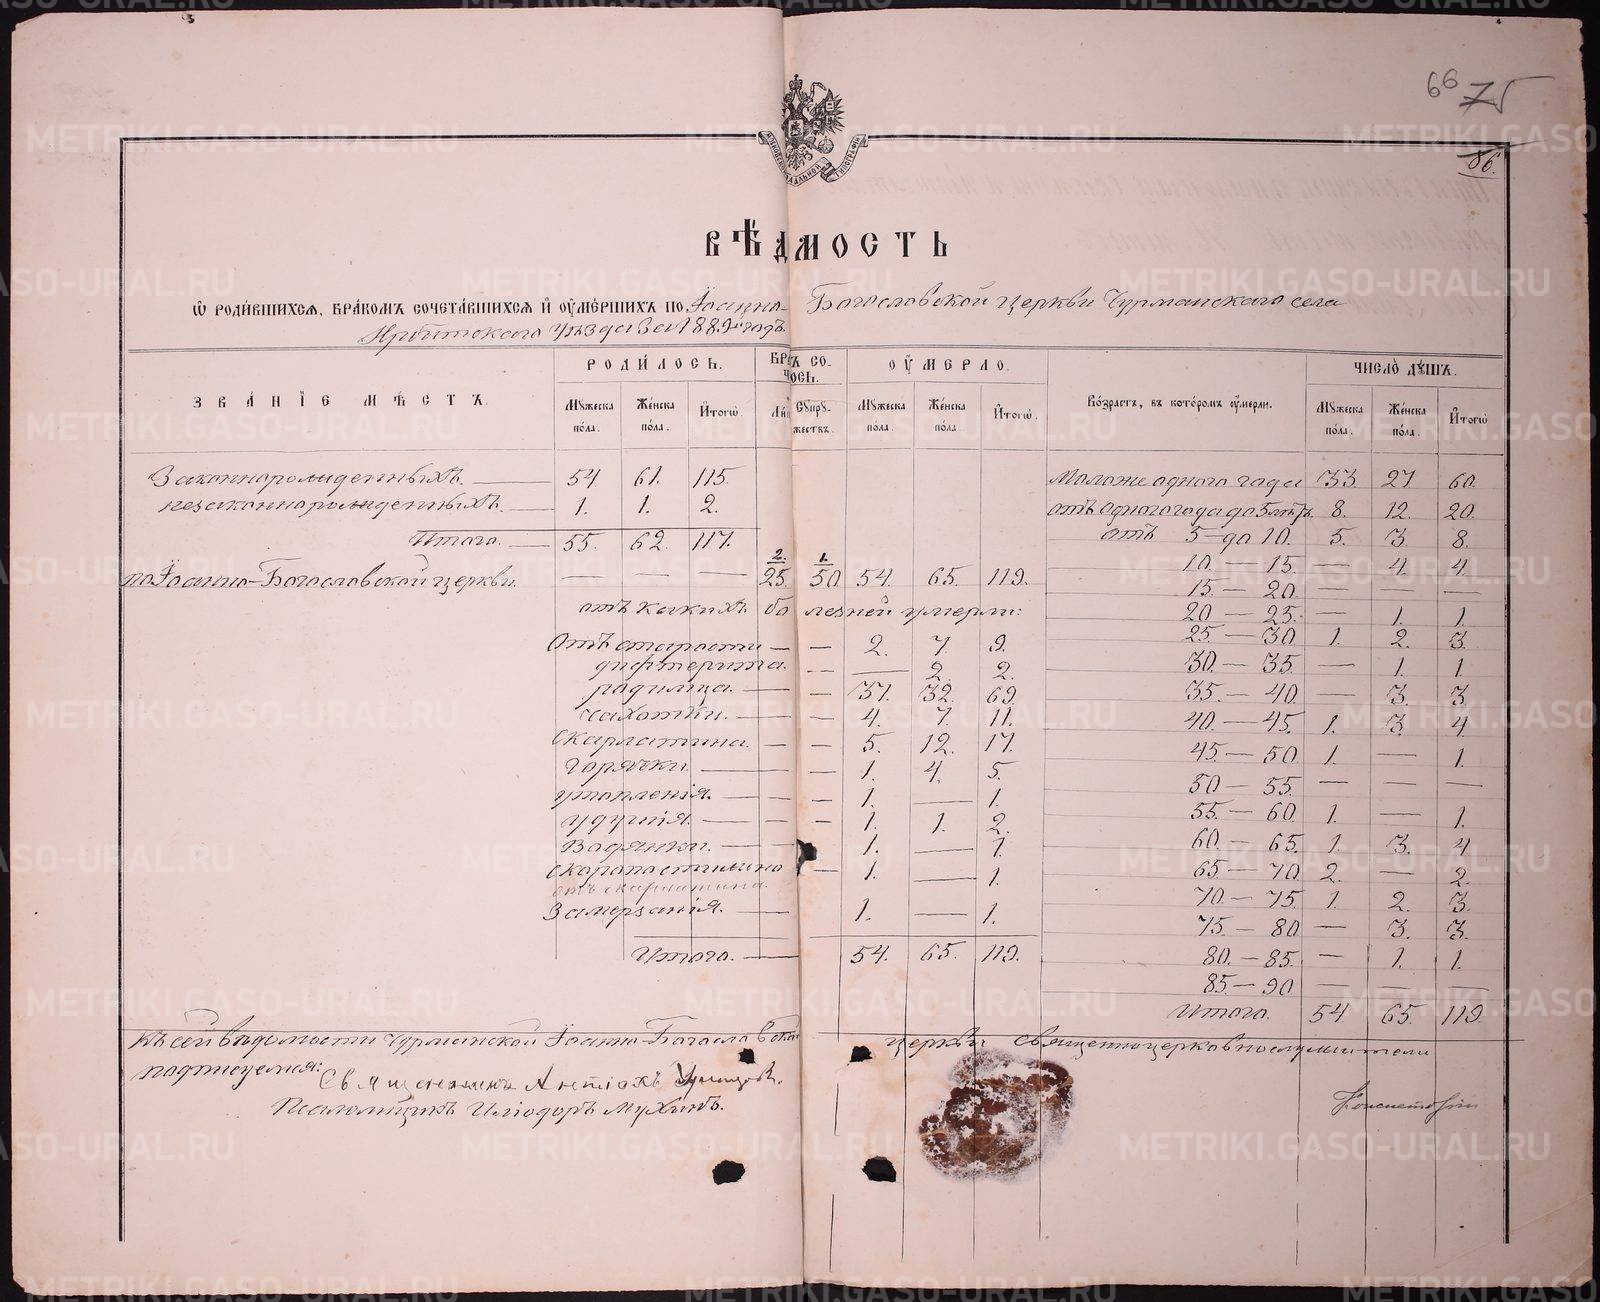 66 75
86.
ВѢДМОСТЬ
Ѡ РОДИ́ВШИХСЯ, БРА́КОМЪ СОЧЕТА́ВШИХСЯ И҆ ОУ҆МЕ́РШИХЪ ПО Іоанно-Богословской церкви Чурманскаго села
Ирбитскаго уѣзда За 1889 годъ.
ЗВА́НІЕ МѢ́СТЪ. РОДИ́ЛОСЬ. БРАКЪ СО-ЧОСЬ. ОУ҆́МЕРЛО. Во́зрастъ, въ кото́ромъ оу҆́мерли. ЧИСЛО̀ ДꙊ́ШЪ.
Мꙋжеска по́ла. Же́нска по́ла. И҆того̀. Сꙋпрꙋ-жествъ. Мꙋжеска по́ла. Же́нска по́ла. И҆того̀. Мꙋжеска по́ла. Же́нска по́ла. И҆того̀
Законнорожденныхъ. 54 61. 115. Моложе одного года 33. 27 60.
незаконнорожденныхъ. 1. 1. 2. отъ одного года до 5 лѣтъ 8. 12. 20.
Итого. 55. 62. 117. отъ 5 – до 10. 5. 3 8.
2. 1.
по Іоанно-Богословской церкви. — — — 25. 50. 54. 65. 119. 10. — 15. — 4. 4.
15. — 20. — — —
отъ какихъ болезней умерли: 20 — 25. — 1. 1.
Отъ старости — — 2. 7 9. 25 — 30 1. 2. 3.
дифтерита. — — 2. 2. 30. — 35 — 1. 1.
родимца. — — 37. 32. 69. 35. — 40. — 3. 3
чахотки. — — 4. 7. 11. 40. — 45. 1. 3. 4
Скарлатина. — — 5. 12. 17. 45. — 50. 1. — 1.
горячки. — — 1. 4. 5. 50 — 55 — — —
утопленія. — — 1. — 1. 55. — 60 1. — 1.
удушія. — — 1. 1. 2. 60. — 65. 1. 3. 4
Водянки. — 1. — 1. 65. — 70. 2. — 2.
скоропостижно — 1. — 1. 70. — 75. 1. 2. 3.
отъ скарлатина.
Замерзанія. — 1. — 1. 75. — 80 — 3. 3.
Итого. — 54. 65. 119. 80. — 85. — 1. 1.
85. — 90. — — —
Итого. 54. 65. 119.
Къ сей вѣдомости Чурманской Іоанно-Богословской церкви священноцерковнослужители
подписуемся:
Священникъ Антіохъ
Псаломщикъ Иліодоръ Мухинъ.